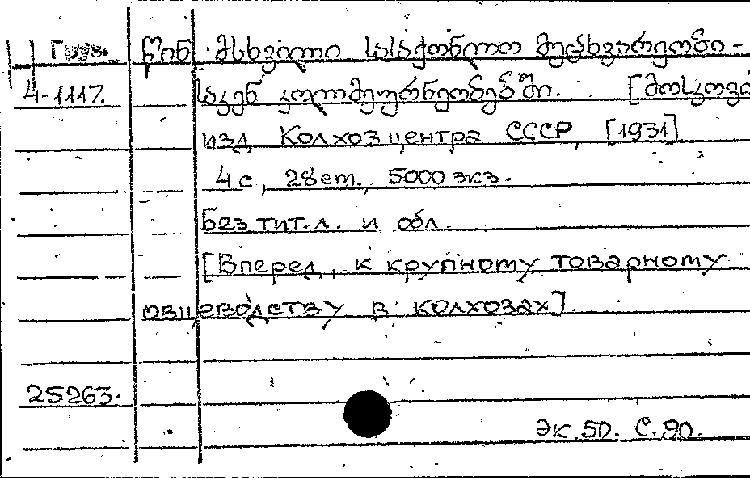 Груз. წინ მსხვილი სასაქონლო მეცხვარეობი-
4-1117. საკენ კოლმეურნეობებში. [მოსკოვი
изд. Колхозцентра СССР, [1931]
4 с, 28 ст., 5000 экз.
Без тит.л. и обл.
[Вперед, к крупному товарному
овцеводству в колхозах]
25263.
Эк.50. С.90.